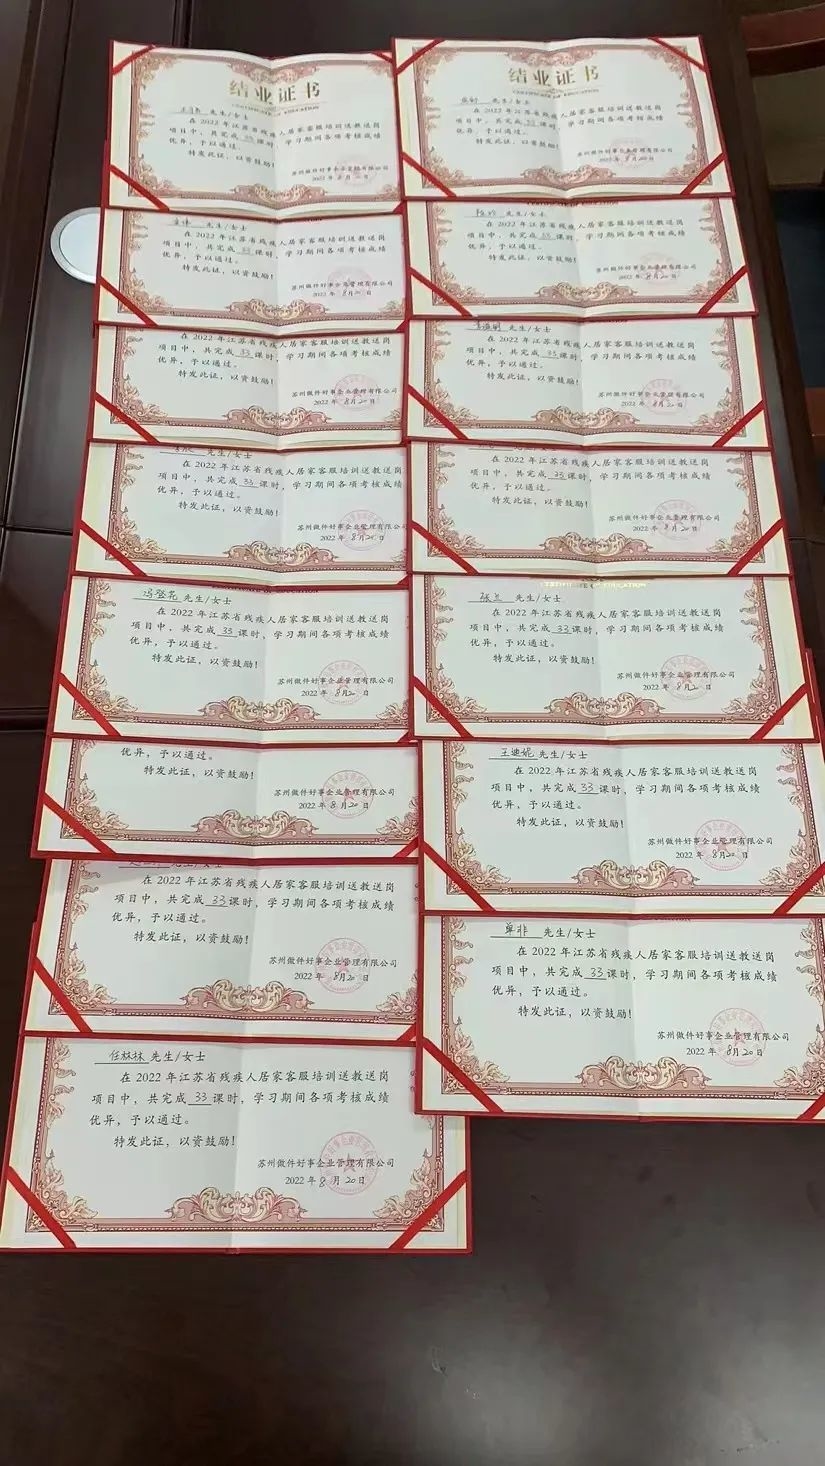 结业证书
CERTIFICATE OF EDUCATION
先生/女士
在2022年江苏省残疾人居家客服培训送教送岗
项目中，共完成 33 课时，学习期间各项考核成绩
优异，予以通过。
特发此证，以资鼓励！
苏州做件好事企业管理有限公司
2022年8月20日
先生/女士
在2022年江苏省残疾人居家客服培训送教送岗
项目中，共完成 33 课时，学习期间各项考核成绩
优异，予以通过。
特发此证，以资鼓励！
苏州做件好事企业管理有限公司
2022年8月20日
在2022年江苏省残疾人居家客服培训送教送岗
项目中，共完成 33 课时，学习期间各项考核成绩
优异，予以通过。
特发此证，以资鼓励！
苏州做件好事企业管理有限公司
2022年8月20日
先生/女士
在2022年江苏省残疾人居家客服培训送教送岗
项目中，共完成 33 课时，学习期间各项考核成绩
优异，予以通过。
特发此证，以资鼓励！
苏州做件好事企业管理有限公司
2022年8月20日
冯登花 先生/女士
在2022年江苏省残疾人居家客服培训送教送岗
项目中，共完成 33 课时，学习期间各项考核成绩
优异，予以通过。
特发此证，以资鼓励！
苏州做件好事企业管理有限公司
2022年8月20日
优异，予以通过。
特发此证，以资鼓励！
苏州做件好事企业管理有限公司
2022年8月20日
先生/女士
在2022年江苏省残疾人居家客服培训送教送岗
项目中，共完成 33 课时，学习期间各项考核成绩
优异，予以通过。
特发此证，以资鼓励！
苏州做件好事企业管理有限公司
2022年8月20日
任林林 先生/女士
在2022年江苏省残疾人居家客服培训送教送岗
项目中，共完成 33 课时，学习期间各项考核成绩
优异，予以通过。
特发此证，以资鼓励！
苏州做件好事企业管理有限公司
2022年8月20日
结业证书
CERTIFICATE OF EDUCATION
先生/女士
在2022年江苏省残疾人居家客服培训送教送岗
项目中，共完成 33 课时，学习期间各项考核成绩
优异，予以通过。
特发此证，以资鼓励！
苏州做件好事企业管理有限公司
2022年8月20日
CERTIFICATE OF EDUCATION
先生/女士
在2022年江苏省残疾人居家客服培训送教送岗
项目中，共完成 33 课时，学习期间各项考核成绩
优异，予以通过。
特发此证，以资鼓励！
苏州做件好事企业管理有限公司
2022年8月20日
先生/女士
在2022年江苏省残疾人居家客服培训送教送岗
项目中，共完成 33 课时，学习期间各项考核成绩
优异，予以通过。
特发此证，以资鼓励！
苏州做件好事企业管理有限公司
2022年8月20日
在2022年江苏省残疾人居家客服培训送教送岗
项目中，共完成 33 课时，学习期间各项考核成绩
优异，予以通过。
特发此证，以资鼓励！
苏州做件好事企业管理有限公司
2022年8月20日
CERTIFICATE OF EDUCATION
张兰 先生/女士
在2022年江苏省残疾人居家客服培训送教送岗
项目中，共完成 33 课时，学习期间各项考核成绩
优异，予以通过。
特发此证，以资鼓励！
苏州做件好事企业管理有限公司
2022年8月20日
王迪妮 先生/女士
在2022年江苏省残疾人居家客服培训送教送岗
项目中，共完成 33 课时，学习期间各项考核成绩
优异，予以通过。
特发此证，以资鼓励！
苏州做件好事企业管理有限公司
2022年8月20日
单非 先生/女士
在2022年江苏省残疾人居家客服培训送教送岗
项目中，共完成 33 课时，学习期间各项考核成绩
优异，予以通过。
特发此证，以资鼓励！
苏州做件好事企业管理有限公司
2022年8月20日